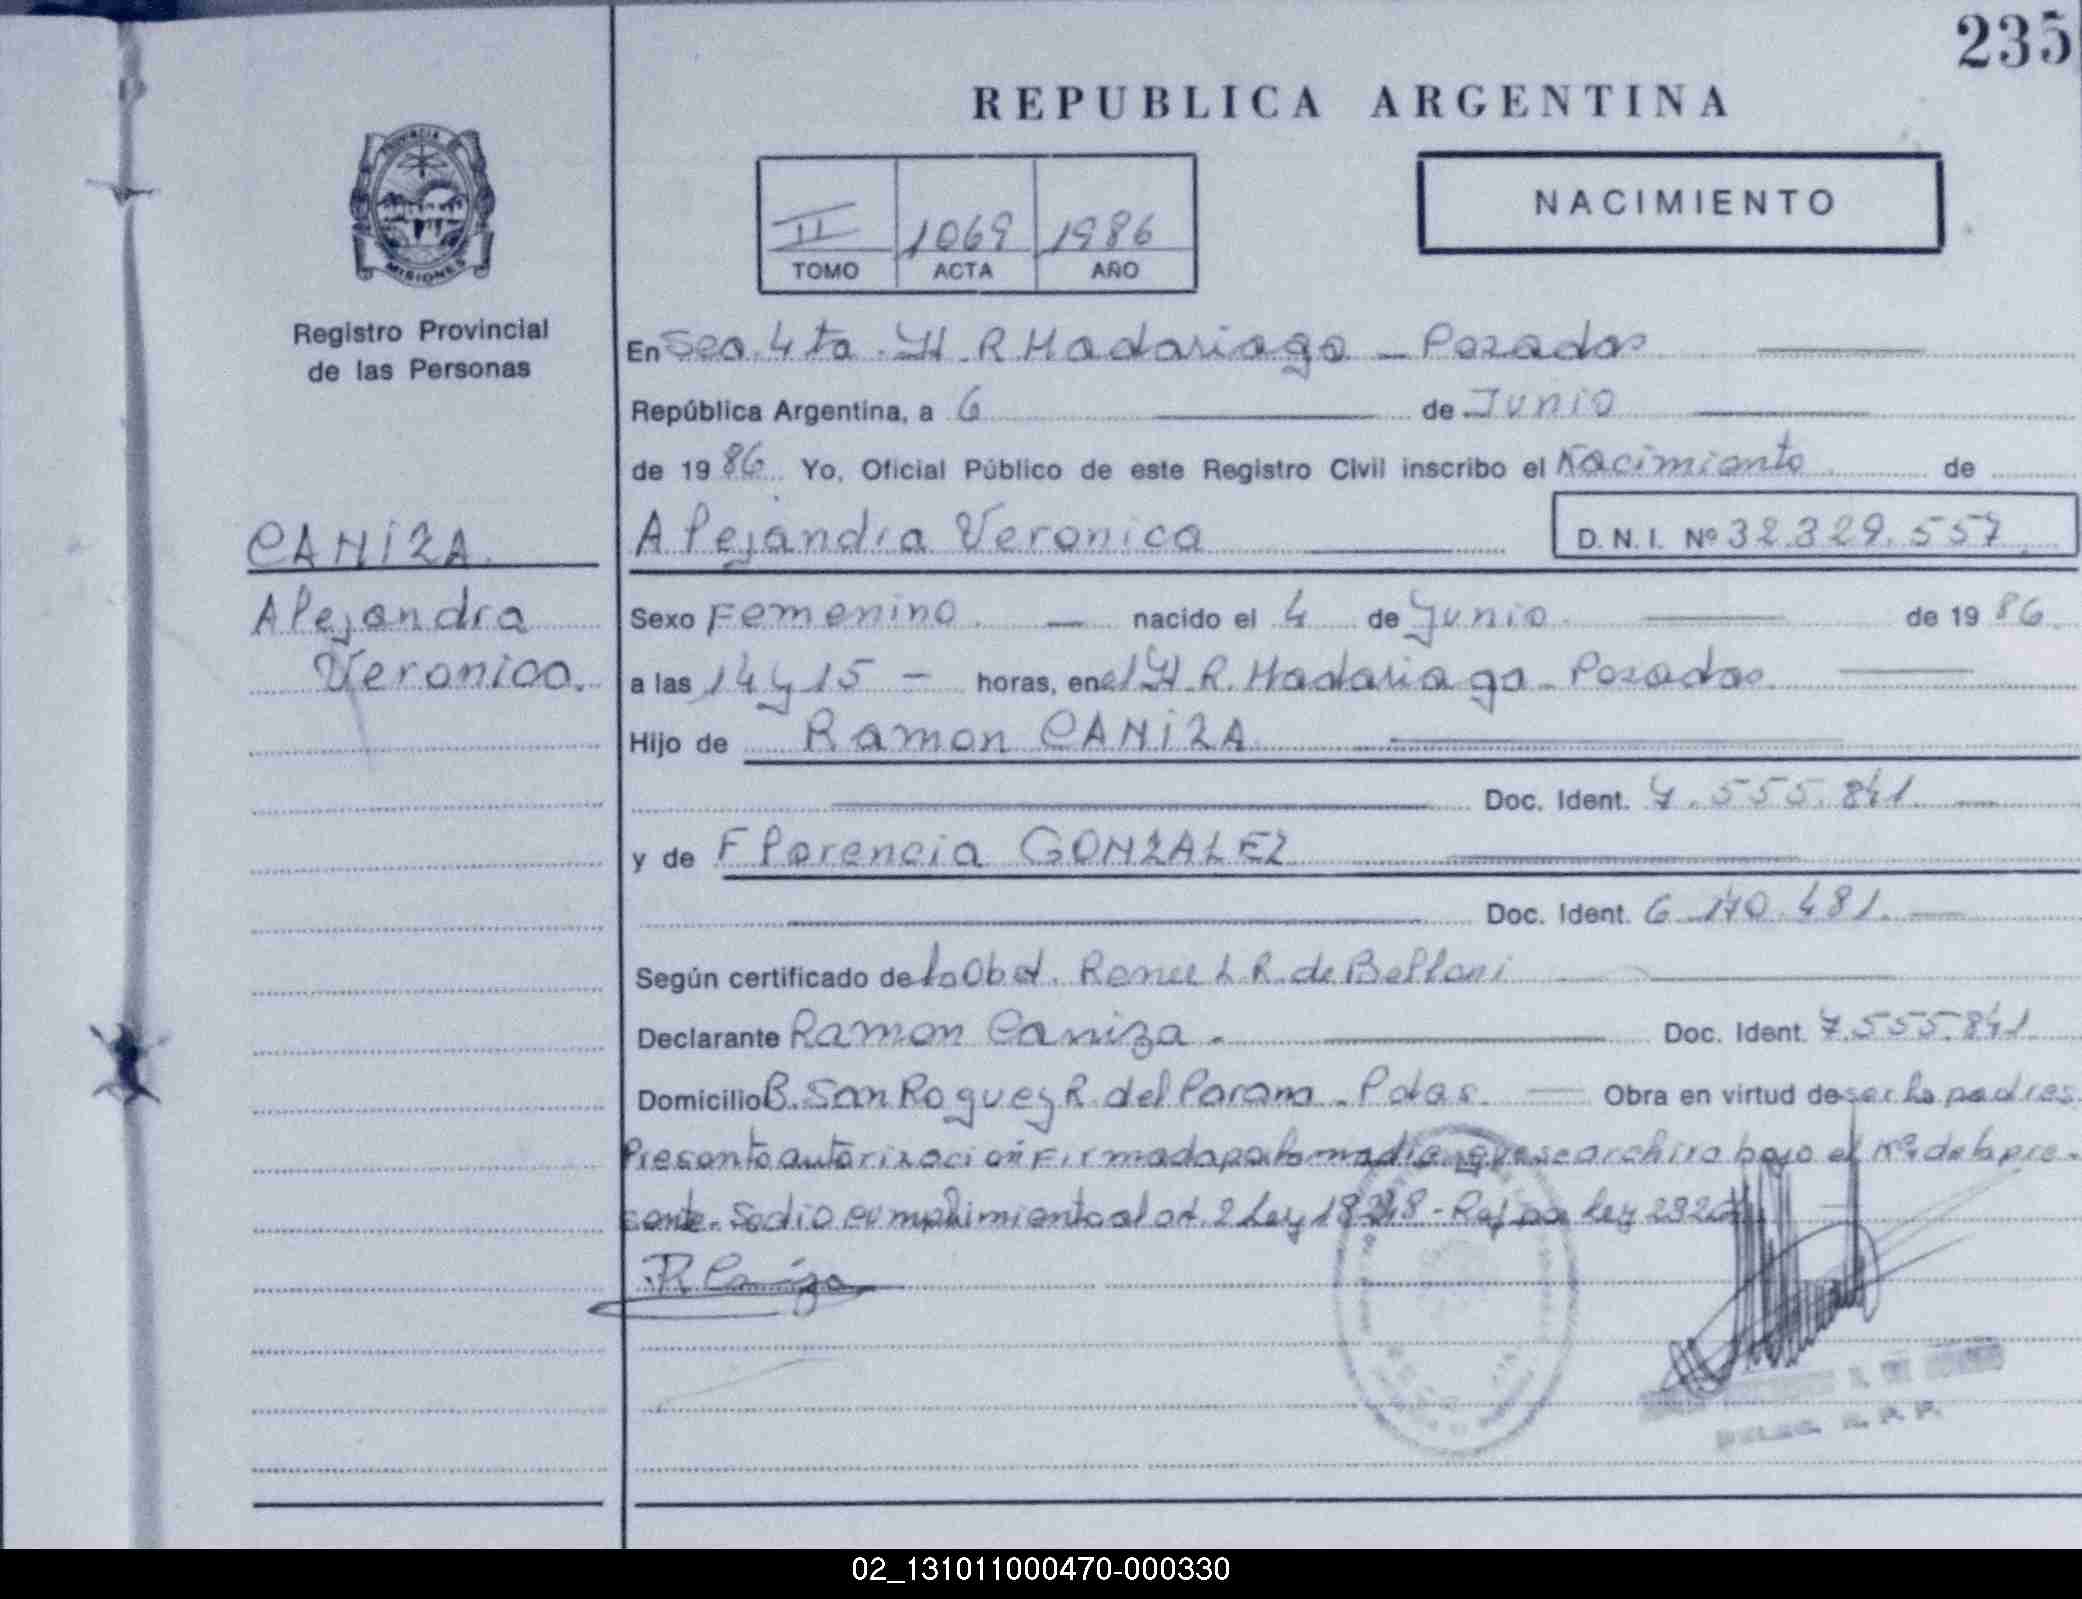 235
REPUBLICA ARGENTINA
NACIMIENTO
II 1069 1986
TOMO ACTA AÑO
PROVINCIA
MISIONES
Registro Provincial
de las Personas
En Sec. 4ta. H. R Madariaga - Posadas
República Argentina, a 6 de Junio
de 1986. Yo, Oficial Público de este Registro Civil inscribo el Nacimiento de
CANIZA.
Alejandra Veronica D. N. I. Nº 32.329.557
Alejandra
Veronica.
Sexo Femenino. nacido el 4 de Junio de 1986.
a las 14 y 15 - horas, en el H. R. Madariaga - Posadas
Hijo de Ramon CANIZA
Doc. Ident. 7.555.841.
y de Florencia GONZALEZ
Doc. Ident. 6.170.481.
Según certificado de la Obst. Renee L. R. de Bellani
Declarante Ramon Caniza. Doc. Ident. 7.555.841
Domicilio B. San Roque y R. del Parana - Pdas. Obra en virtud de ser los padres
Presento autorización firmada por la madre que se archiva bajo el Nº de la pre-
sente. Se dio cumplimiento al art. 2 Ley 18248 - Ref por Ley
R Caniza
02_131011000470-000330